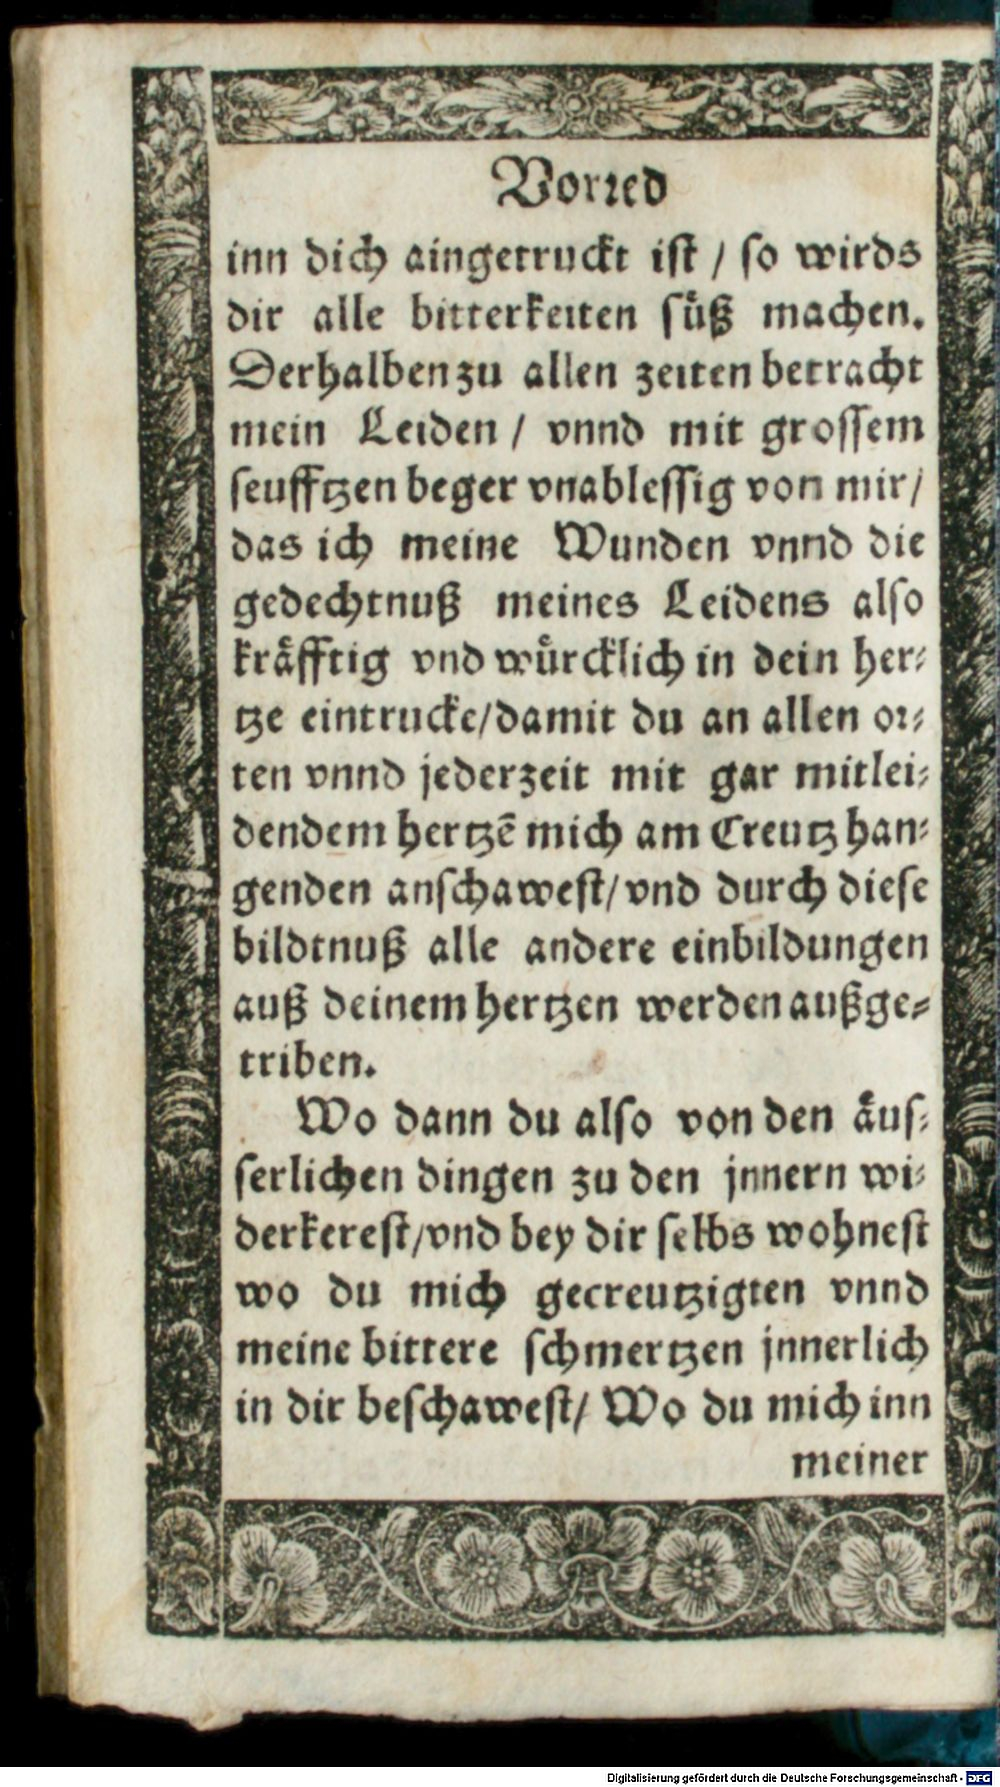 Vorꝛed
inn dich aingetruckt iſt / ſo wirds
dir alle bitterkeiten ſuͤß machen.
Derhalben zu allen zeiten betracht
mein Leiden / vnnd mit groſſem
ſeufftzen beger vnableſſig von mir /
das ich meine Wunden vnnd die
gedechtnuß meines Leidens alſo
kraͤfftig vnd wuͤrcklich in dein her⸗
tze eintrucke / damit du an allen oꝛ⸗
ten vnnd jederzeit mit gar mitlei⸗
dendem hertzē mich am Creutz han⸗
genden anſchaweſt / vnd durch dieſe
bildtnuß alle andere einbildungen
auß deinem hertzen werden außge⸗
triben.
Wo dann du alſo von den aͤuſ⸗
ſerlichen dingen zu den jnnern wi⸗
derkereſt / vnd bey dir ſelbs wohneſt
wo du mich gecreutzigten vnnd
meine bittere ſchmertzen jnnerlich
in dir beſchaweſt / Wo du mich inn
meiner
Digitalisierung gefördert durch die Deutsche Forschungsgemeinschaft - DFG